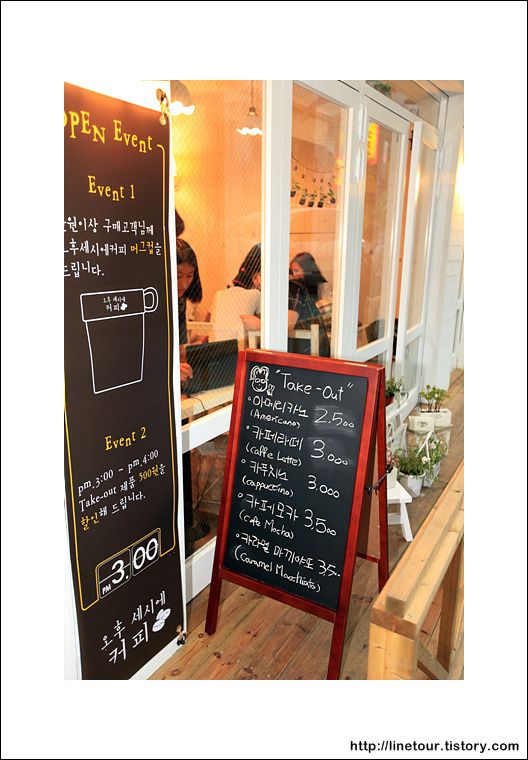 OPEN Event
Event 1
만원이상 구매고객님께
오후세시에커피 머그컵을
드립니다.
오후 세시에
커피
Event 2
pm 3:00 ~ pm 4:00
Take-out 제품 500원을
할인해 드립니다.
PM 3:00
오후 세시에
커피
"Take-Out"
아메리카노 2.500
(Americano)
카페라떼 3.000
(caffe Latte)
카푸치노 3.000
(cappuccino)
카페모카 3,500
(Cafe Mocha)
카라멜 마끼아또 3,500
(Caramel Macchiato)
http://linetour.tistory.com